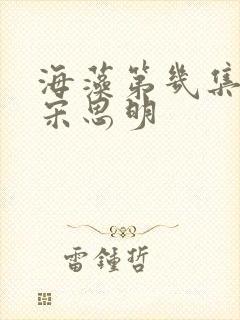 海藻第幾集
宋思明
雷鍾哲